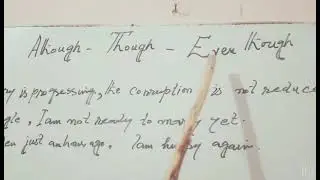 Although - Though - Even though
ry is progressing, the corruption is not reduce
gle, I am not ready to marry yet.
en just an hour ago, I am hungry again.